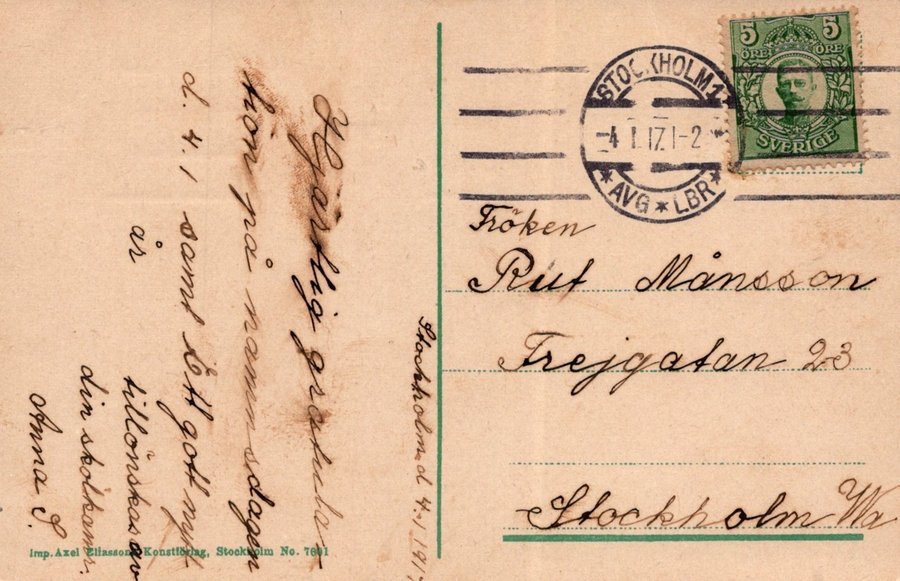 Stockholm d. 4.1 1917
Hjärtlig gratula-
tion på namnsdagen
d. 4.1 samt Ett gott nytt
år tillönskas av
din skolkamr.
Anna S.
Imp. Axel Eliassons Konstförlag, Stockholm No. 7601
5 5
ÖRE ÖRE
SVERIGE
STOCKHOLM 1
-4 1.17.1-2
* AVG * LBR *
Fröken
Rut Månsson
Frejgatan 23
Stockholm Va